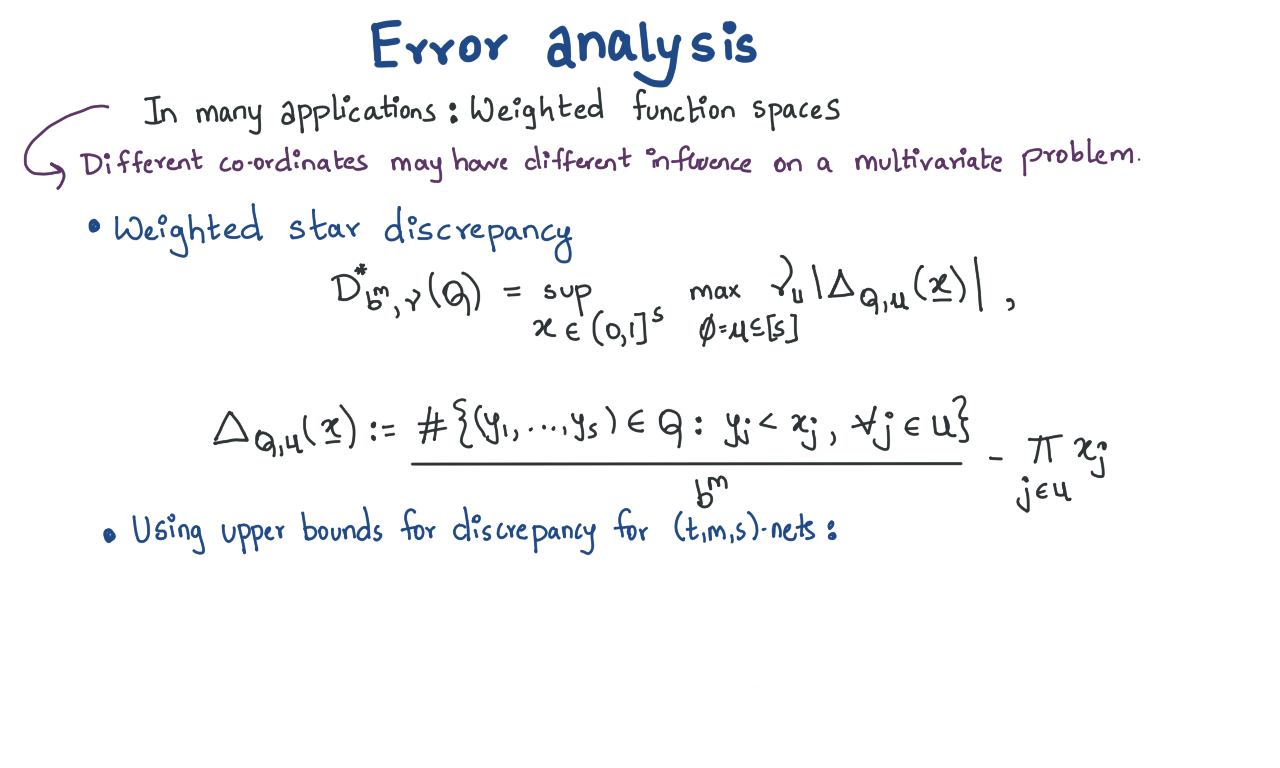 Error analysis
In many applications: Weighted function spaces
Different co-ordinates may have different influence on a multivariate problem.
• Weighted star discrepancy
D*_{b^m,γ}(Q) = sup_{x ∈ (0,1]^s} max_{∅=u⊆[s]} γ_u |Δ_{Q,u}(x)|,
Δ_{Q,u}(x) := #{(y_1,...,y_s) ∈ Q : y_j < x_j, ∀j ∈ u} / b^m − π_{j∈u} x_j
• Using upper bounds for discrepancy for (t,m,s)-nets: